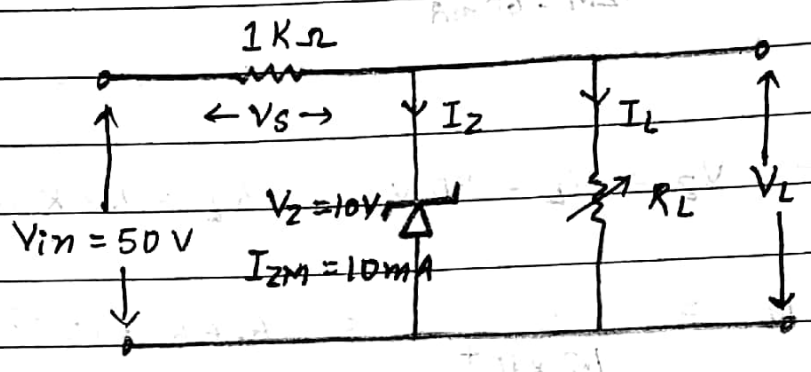 1 K Ω
← Vs →
I_Z
I_L
V_Z = 10V
R_L
V_L
Vin = 50 V
I_ZM = 10mA